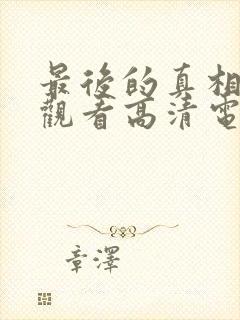 最後的真相
觀看高清電
章澤